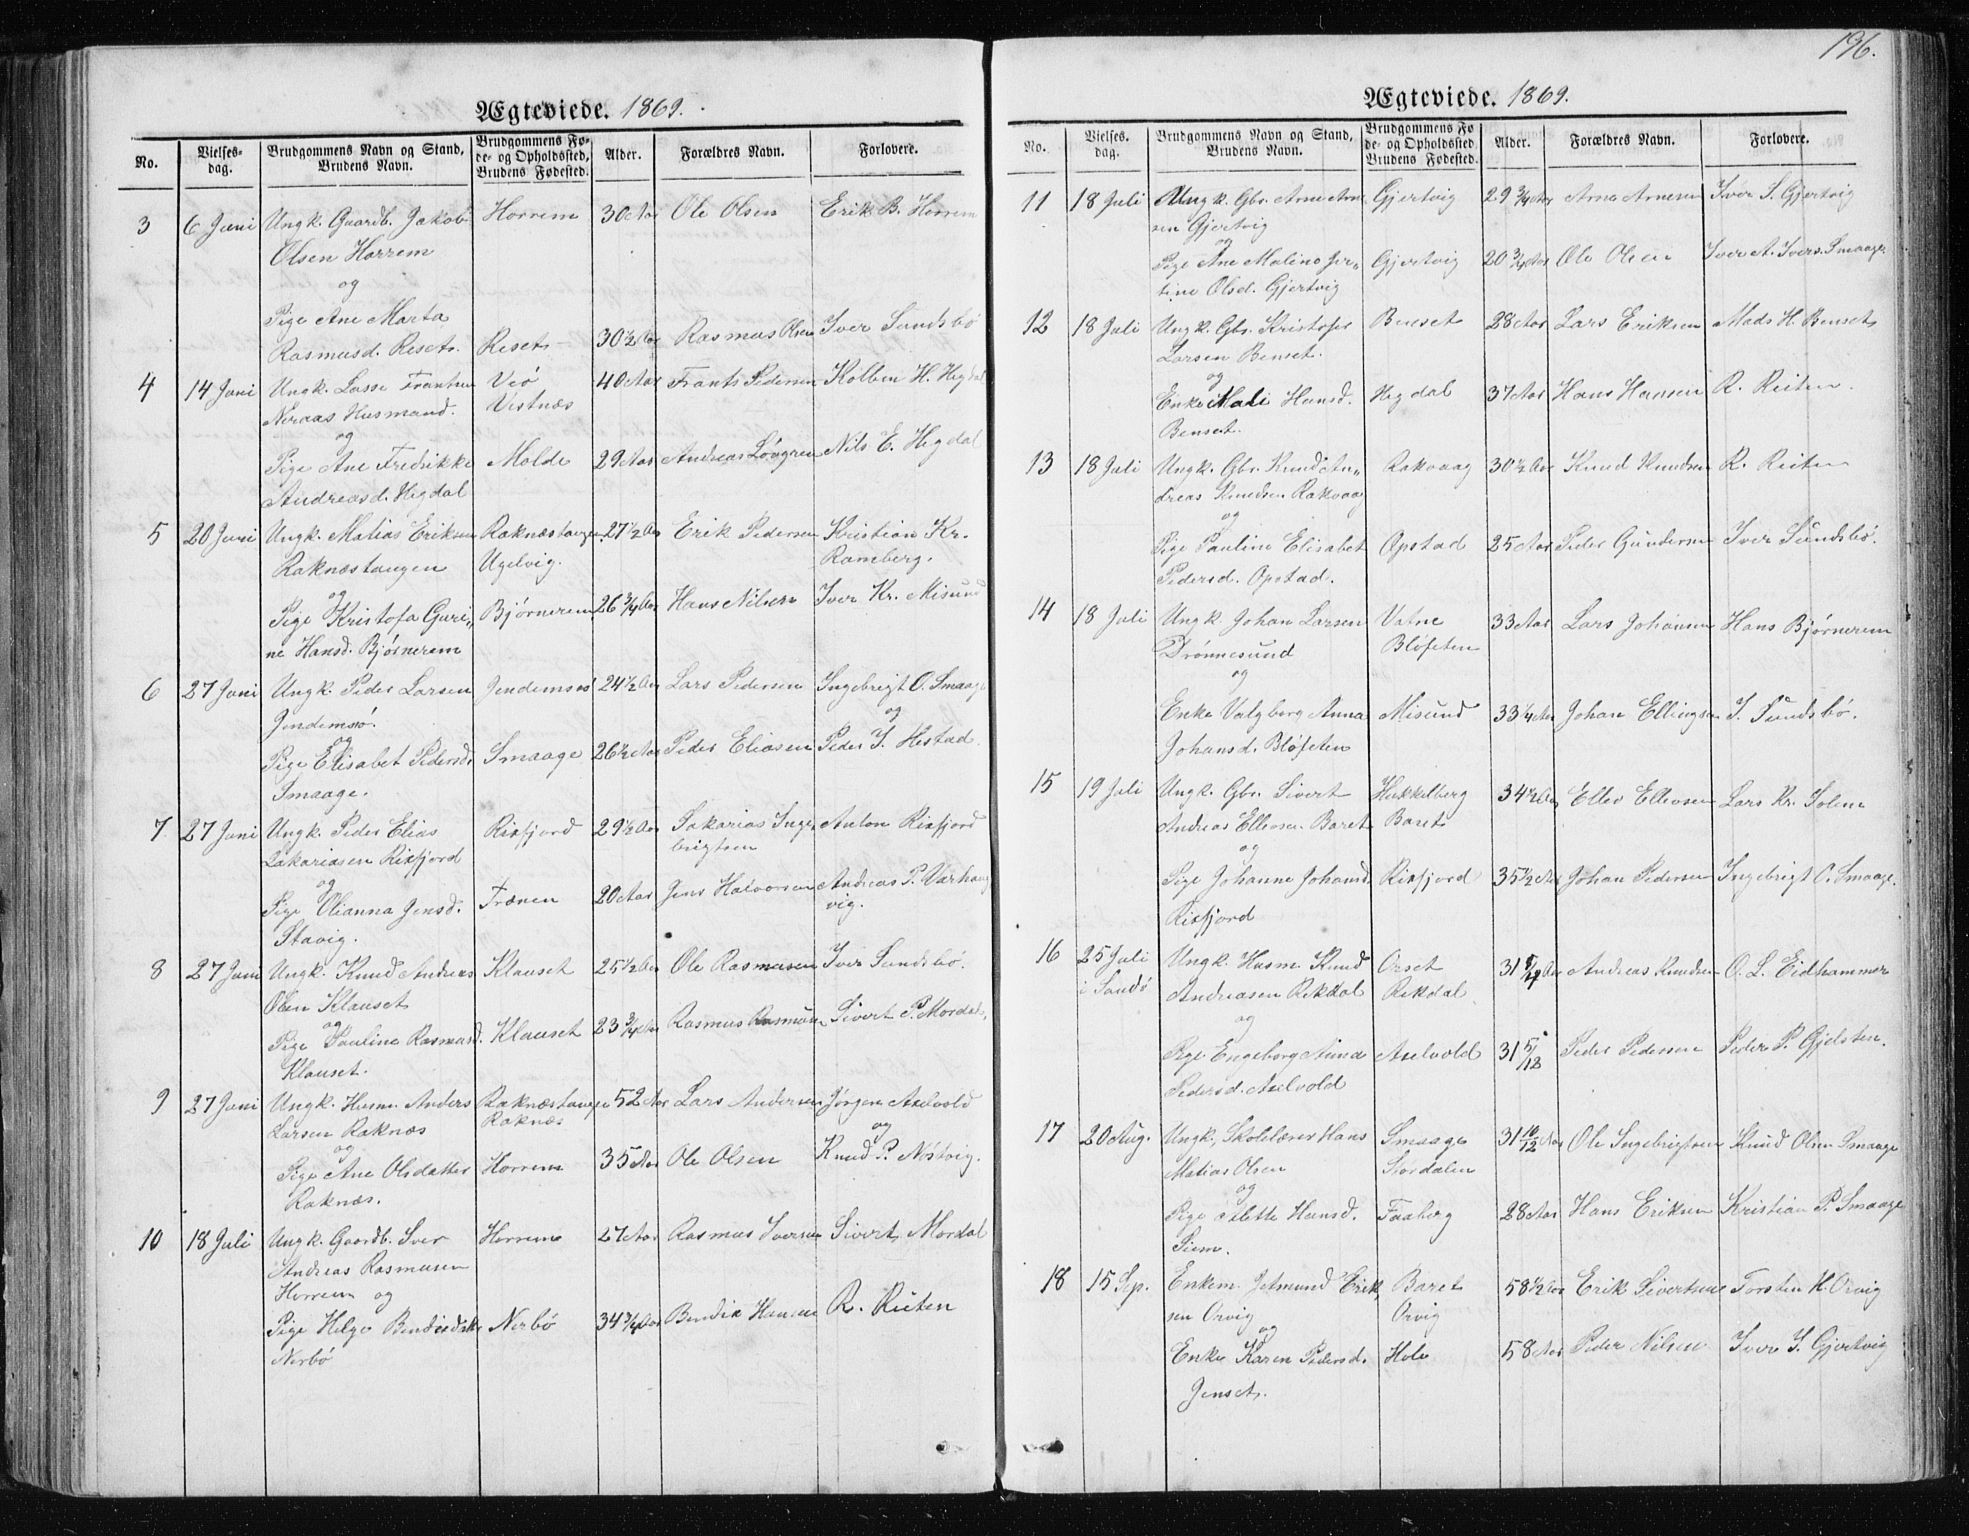 196.
Ægteviede. 1869.
No. Vielses-dag. Brudgommens Navn og Stand, Brudens Navn. Brudgommens Fø-de- og Opholdssted, Brudens Fødested. Alder. Forældres Navn. Forlovere.
3 6 Juni Ungk. Gaardb. Jakob Horrem 30 Aar Ole Olsen Erik B. Horrem
Olsen Horrem
og
Pige Ane Marta
Rasmusd. Reset. Reset 30½ Aar Rasmus Olsen Iver Sundsbø
4 14 Juni Ungk. Lasse Frantsen Veø 40 Aar Frants Pedersen Kolben H. Hegdal
Neraas Husmand. Vestnæs
og
Pige Ane Fredrikke Molde 29 Aar Andreas Løvgren Nils E. Hegdal
Andreasd. Hegdal
5 20 Juni Ungk. Matias Eriksen Raknæstangen 27½ Aar Erik Pedersen Kristian Kr.
Raknæstangen Ugelvig. Ramberg.
og
Pige Kristofa Guri- Bjørnerem 26¾ Aar Hans Nilsen Iver Kr. Misund
ne Hansd. Bjørnerem
6 27 Juni Ungk. Peder Larsen Jendemsø 24½ Aar Lars Pedersen Ingebrigt O. Smaage
Jendemsø. og
og
Pige Elisabet Pedersd. Smaage 26½ Aar Peder Eliasen Peder I. Hestad
Smaage.
7 27 Juni Ungk. Peder Elias Rixfjord 29½ Aar Sakarias Inge- Anton Rixfjord
Zakariasen Rixfjord brigtsen
og
Pige Olianna Jensd. Frænen 20 Aar Jens Halvorsen Andreas P. Varhaug
Stavig. vig.
8 27 Juni Ungk. Knud Andreas Klauset 25½ Aar Ole Rasmusen Iver Sundsbø.
Olsen Klauset
og
Pige Pauline Rasmusd. Klauset 23¾ Aar Rasmus Rasmusen Sivert P. Mordal,
Klauset.
9 27 Juni Ungk. Husm. Anders Raknæstangen 52 Aar Lars Andersen Jørgen Axelvold
Larsen Raknæs Raknæs og
og
Pige Ane Olsdatter Horrem 35 Aar Ole Olsen Knud P. Nøstvig.
Raknæs.
10 18 Juli Ungk. Gaardb. Iver Horrem 27 Aar Rasmus Iversen Sivert Mordal
Andreas Rasmusen
Horrem og
Pige Helge Bendixdtr. Nerbø 34¾ Aar Bendix Hansen R. Reiten
Nerbø
Ægteviede. 1869.
No. Vielses-dag. Brudgommens Navn og Stand, Brudens Navn. Brudgommens Fø-de- og Opholdssted, Brudens Fødested. Alder. Forældres Navn. Forlovere.
11 18 Juli Ungk. Gbr. Arne Arne- Gjertvig 29¾ Aar Arne Arnesen Iver S. Gjertvig
sen Gjertvig
og
Pige Ane Malina Jer- Gjertvig 20¾ Aar Ole Olsen Iver A. Ivers. Smaage.
tine Olsd. Gjertvig
12 18 Juli Ungk. Gbr. Kristofer Benset 28 Aar Lars Eriksen Mads H. Benset
Larsen Benset.
og
Enke Mali Hansd. Hegdal 37 Aar Hans Hansen R. Reiten.
Benset.
13 18 Juli Ungk. Gbr. Knud An- Rakvaag 30½ Aar Knud Knudsen R. Reiten
dreas Knudsen Rakvaag
og
Pige Pauline Elisabet Opstad 25 Aar Peder Gundersen Iver Sundsbø.
Pedersd. Opstad.
14 18 Juli Ungk. Johan Larsen Vatne 33 Aar Lars Johansen Hans Bjørnerem
Drønnesund Bløfeten
og
Enke Valgberg Anna Misund 33¼ Aar Johan Ellingsen I. Sundsbø.
Johansd. Bløfeten
15 19 Juli Ungk. Gbr. Sivert Hukkelberg 34½ Aar Ellev Ellevsen Lars Kr. Solem
Andreas Ellevsen Baret Baret
og
Pige Johanne Johansd. Rixfjord 35½ Aar Johan Pedersen Ingebrigt O. Smaage.
Rixfjord
16 25 Juli Ungk. Husm. Knud Orset 31 Aar Andreas Knudsen O. L. Eidhammer
i Sandø Andreasen Rekdal Rekdal
og
Pige Engeborg Anna Axelvold 31 5/12 Peder Pedersen Peder P. Gjelsten.
Pedersd. Axelvold
17 20 Aug. Ungk. Skolelærer Hans Smaage 31 10/12 Aar Ole Ingebrigtsen Knud Olsen Smaage
Matias Olsen Stordalen
og
Pige Alette Hansd. Faaberg 28 Aar Hans Eriksen Kristian P. Smaage
Siem.
18 15 Sep. Enkem. Jetmund Erik- Baret 58½ Aar Erik Sivertsen Torsten H. Orvig
sen Orvig Orvig
og
Enke Karen Pedersd. Hole 58 Aar Peder Nilsen Iver S. Gjertvig
Jenset.